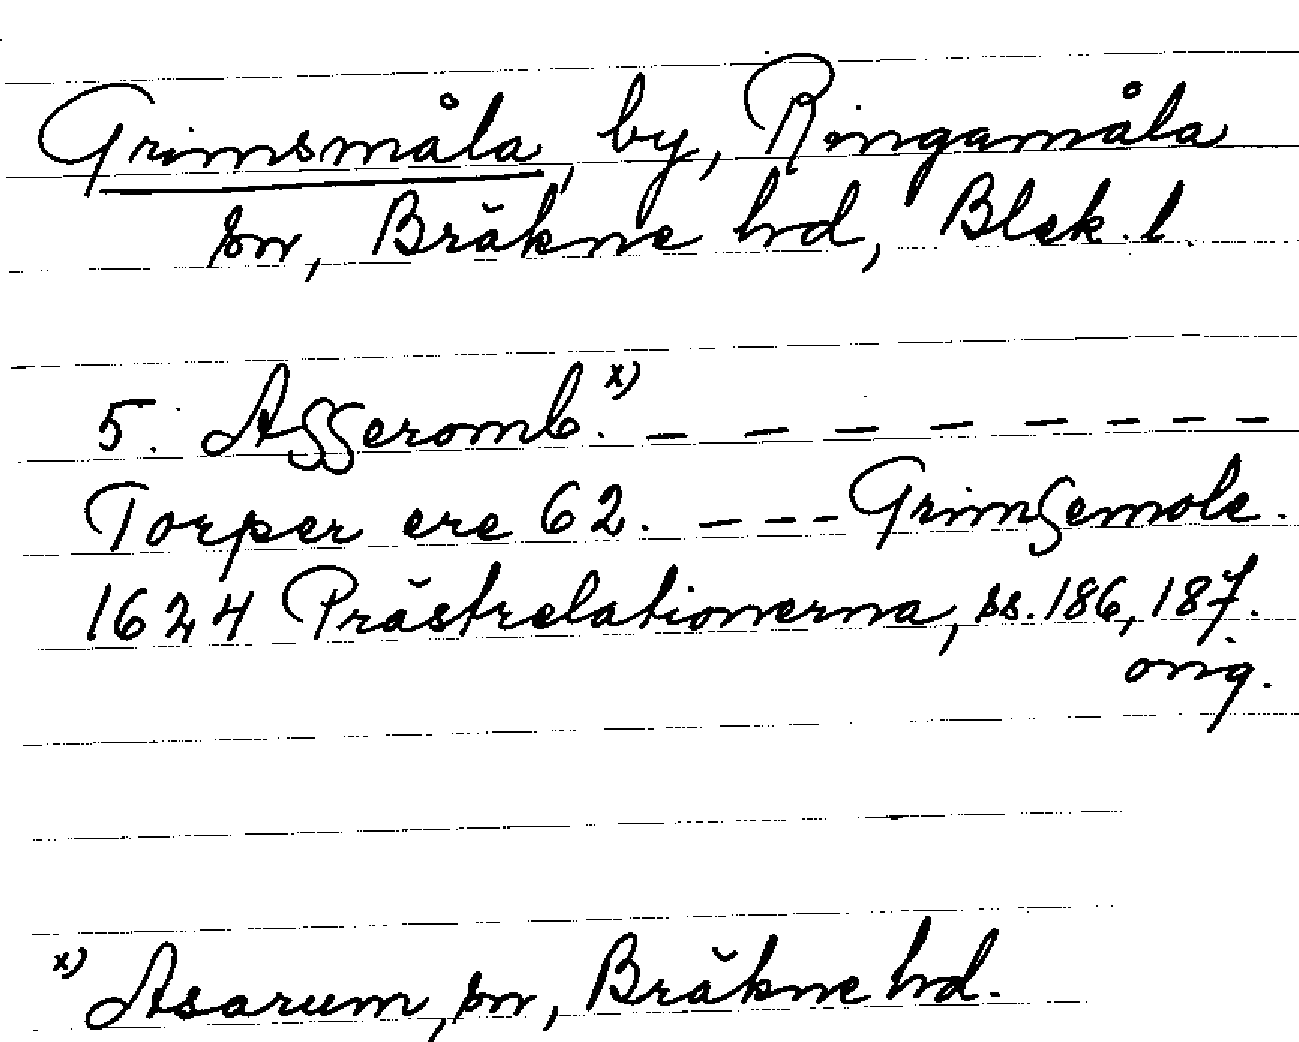 Grimsmåla, by, Ringamåla
sn, Bräkne hd, Blek. l.
5. Asseromb.x) — — — — — — —
Torper ere 62. — - - - Grimsemole.
1624 Prästrelationerna, ss. 186, 187.
orig.
x) Asarum, sn, Bräkne hd.